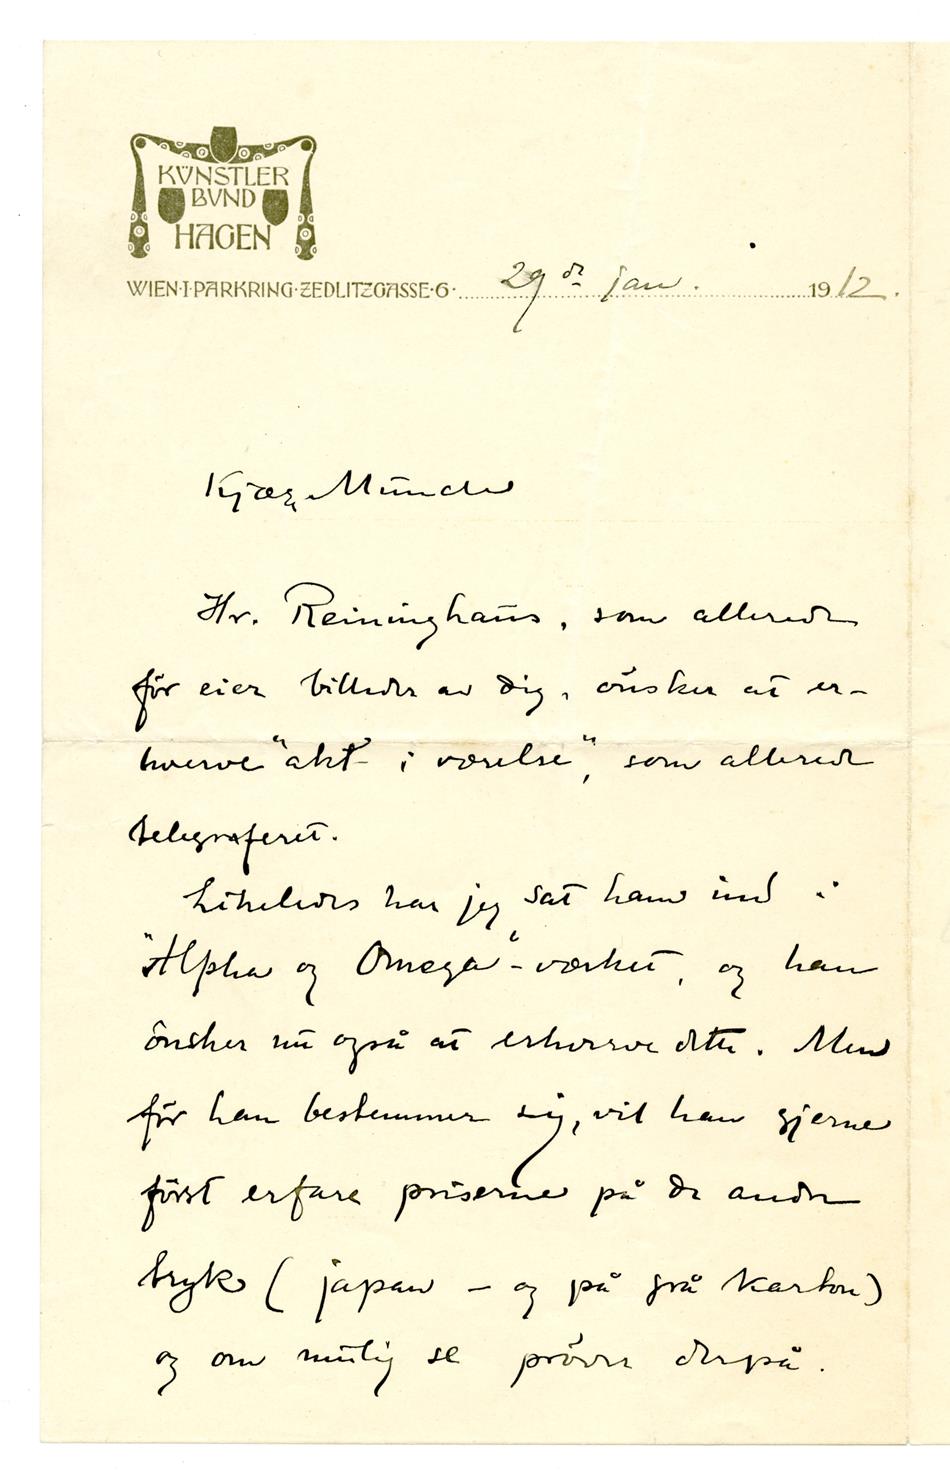 KÜNSTLER
BVND
HAGEN
WIEN·I·PARKRING·ZEDLITZGASSE·6· 29de jan. 1912.
Kjære Munch
Hr. Reininghaus, som allerede
för eier billeder av dig, önsker at er-
hverve "akt i værelse", som allerede
telegraferet.
Likeledes har jeg sat ham ind i
"Alpha og Omega"-værket, og han
önsker nu også at erhverve dette. Men
för han bestemmer sig, vil han gjerne
först erfare priserne på de andre
tryk (japan – og på grå karton)
og om mulig se pröver derpå.